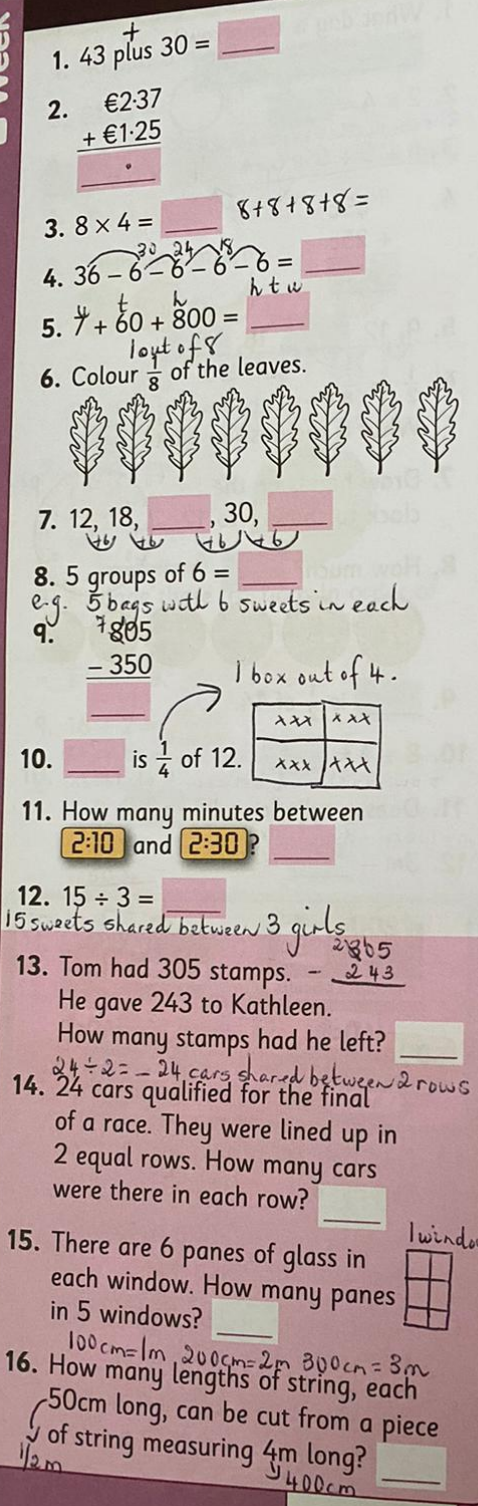 Week
+
1. 43 plus 30 =
2. €2·37
+ €1·25
·
3. 8 × 4 = 8+8+8+8=
30 24 18
4. 36 – 6 – 6 – 6 – 6 =
t h h t u
5. 7 + 60 + 800 =
1 out of 8
6. Colour 1/8 of the leaves.
7. 12, 18, , 30,
+6 +6 +6 +6
8. 5 groups of 6 =
e.g. 5 bags with 6 sweets in each
9. 805
– 350
1 box out of 4.
xxx xxx
10. is 1/4 of 12. xxx xxx
11. How many minutes between
2:10 and 2:30 ?
12. 15 ÷ 3 =
15 sweets shared between 3 girls
13. Tom had 305 stamps.
– 243
He gave 243 to Kathleen.
How many stamps had he left?
24÷2= – 24 cars shared between 2 rows
14. 24 cars qualified for the final
of a race. They were lined up in
2 equal rows. How many cars
were there in each row?
15. There are 6 panes of glass in
1 windo
each window. How many panes
in 5 windows?
100cm=1m 200cm=2m 300cm=3m
16. How many lengths of string, each
50cm long, can be cut from a piece
of string measuring 4m long?
1/2m 400cm